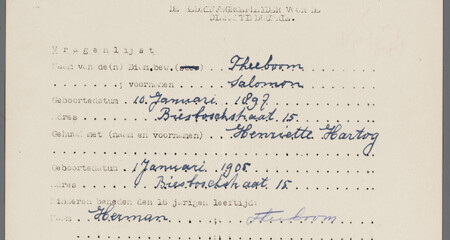 DE
VOOR DE
Vragenlijst
Naam van de(n) Diam.bew. (ster) Theeboom
; voornamen Salomon
Geboortedatum 10 Januari 1897
Adres Biesboschstraat 15.
Gehuwd met (naam en voornamen) Henriette Hartog
Geboortedatum 1 Januari 1905
Adres Biesboschstraat 15
Kinderen beneden den 16 jarigen leertijd:
Naam Herman Theeboom